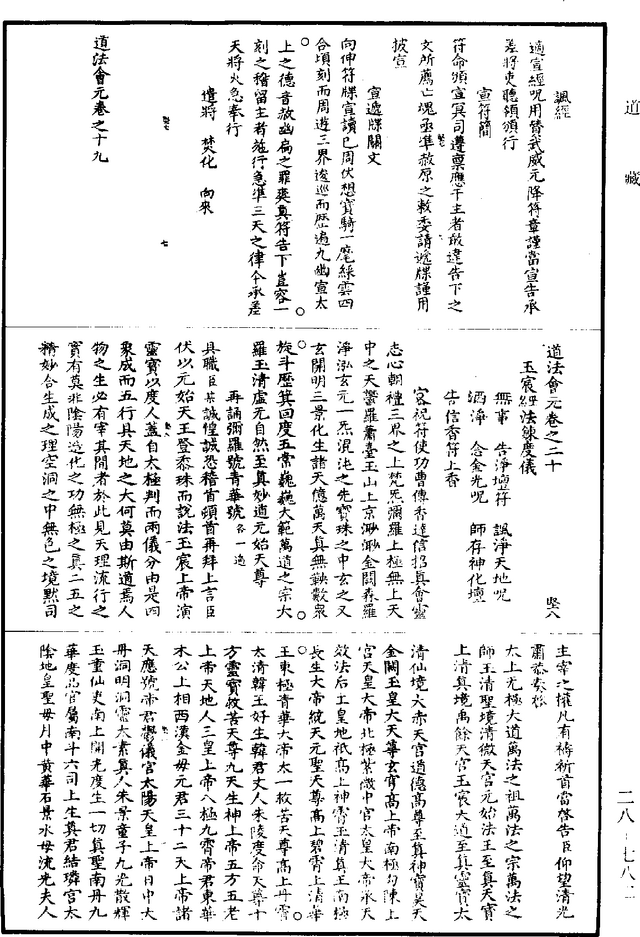 道藏
諷經
適宣經呪用贊武威元降符章謹當宣告承
差將吏聽領頒行
宣符簡
符命頒宣冥司遵稟應干主者敢違告下之
文所薦亡魂亟準赦原之敕委請遞牒謹用
披宣
宣遞牒關文
向伸符牒宣讀已周伏想寶騎一麾綵雲四
合頃刻而周遊三界逡巡而歷遍九幽宣太
上之德音赦幽扃之罪爽真符告下豈容一
刻之稽留主者施行急準三天之律今承差
天將火急奉行
遣將 焚化 向來
道法會元卷之十九
七
道法會元卷之二十
玉宸經法鍊度儀
無事 告淨壇符 諷淨天地呪
洒淨 念金光呪 師存神化壇
告信香符上香
密祝符使功曹傳香達信招真會靈
志心朝禮三界之上梵炁彌羅上極無上天
中之天鬱羅蕭臺玉山上京渺渺金闕森羅
淨泓玄元一炁混沌之先寶珠之中玄之又
玄開明三景化生諸天億萬天真無鞅數衆
旋斗歷箕回度五常巍巍大範萬道之宗大
羅玉清虛元自然至真妙道元始天尊
再誦彌羅號青華號各一遍
具職臣某誠惶誠恐稽首頓首再拜上言臣
伏以元始天王登黍珠而說法玉宸上帝演
靈寶以度人蓋自太極判而兩儀分由是四
象成而五行具天地之大何莫由斯道焉人
物之生必有宰其間者於此見天理流行之
實有莫非陰陽造化之功無極之真二五之
精妙合生成之理空洞之中無色之境默司
主宰之權凡有禱祈首當啓告臣仰望清光
肅恭奏移
太上無極大道萬法之祖萬法之宗萬法之
師玉清聖境清微天宮元始法王至真天寶
上清真境禹餘天宮玉宸大道至真靈寶太
清仙境大赤天宮道德高尊至真神寶昊天
金闕玉皇大天尊玄穹高上帝南極勾陳上
宮天皇大帝北極紫微中宮太皇大帝承天
效法后土皇地祇高上神霄玉清真王南極
長生大帝統天元聖天尊高上碧霄上清華
王東極青華大帝太一救苦天尊高上丹霄
太清韓王好生韓君丈人朱陵度命天尊十
方靈寶救苦天尊九天生神上帝五方五老
上帝天地人三皇上帝八極九霄帝君東華
木公上相西漢金母元君三十二天上帝諸
天應號帝君鬱儀宮太陽天皇上帝日中大
丹洞明洞靈太素真人朱景童子九光散輝
玉童仙吏南上開光度生一切真聖南丹九
華度品官屬南斗六司上生真君結璘宮太
陰地皇聖母月中黃華石景水母流光夫人